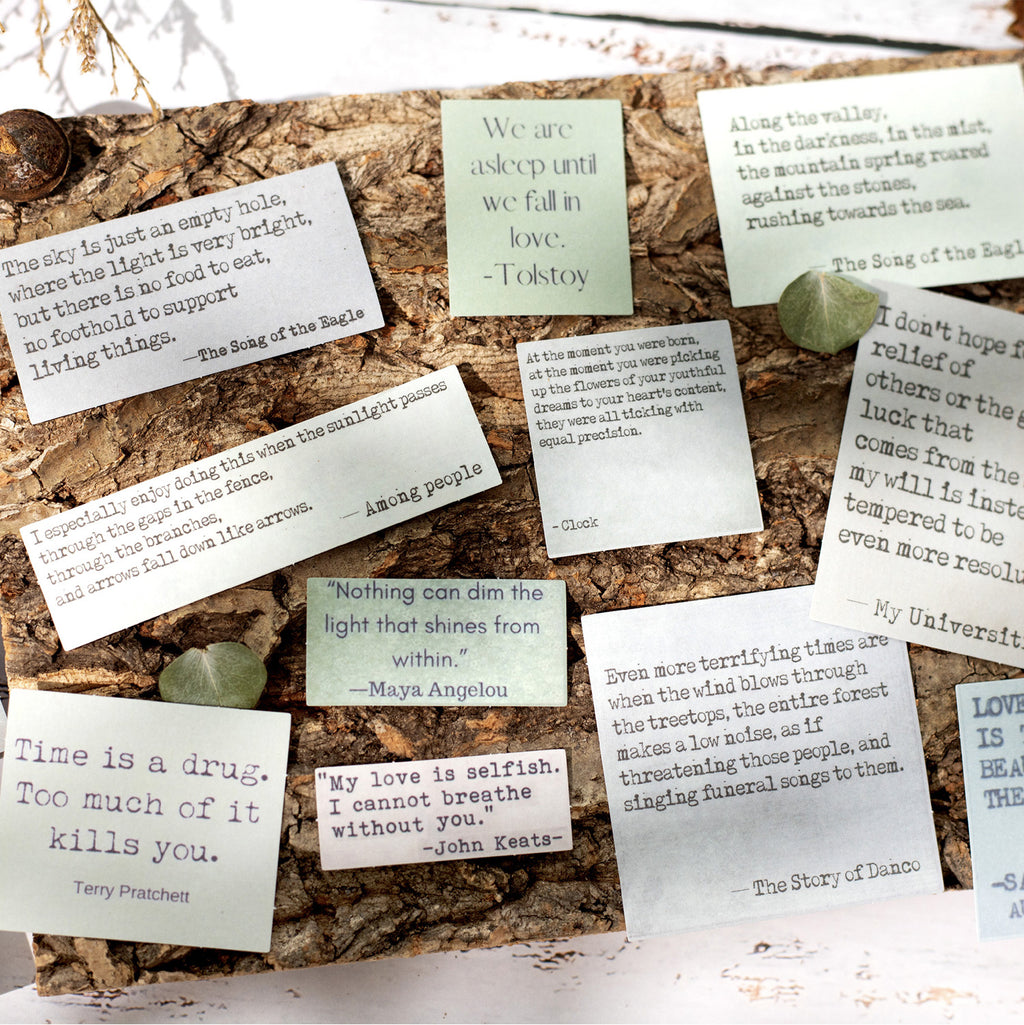 We are
asleep until
we fall in
love.
-Tolstoy
Along the valley,
in the darkness, in the mist,
the mountain spring roared
against the stones,
rushing towards the sea.
— The Song of the Eagle
The sky is just an empty hole,
where the light is very bright,
but there is no food to eat,
no foothold to support
living things.
—The Song of the Eagle
At the moment you were born,
at the moment you were picking
up the flowers of your youthful
dreams to your heart's content,
they were all ticking with
equal precision.
- Clock
I don't hope
relief of
others or the
luck that
comes from the
my will is
tempered to be
even more
— My
I especially enjoy doing this when the sunlight passes
through the gaps in the fence,
through the branches,
and arrows fall down like arrows.
— Among people
“Nothing can dim the
light that shines from
within.”
—Maya Angelou
Even more terrifying times are
when the wind blows through
the treetops, the entire forest
makes a low noise, as if
threatening those people, and
singing funeral songs to them.
— The Story of Danco
LOVE
IS
Time is a drug.
Too much of it
kills you.
Terry Pratchett
"My love is selfish.
I cannot breathe
without you."
-John Keats-